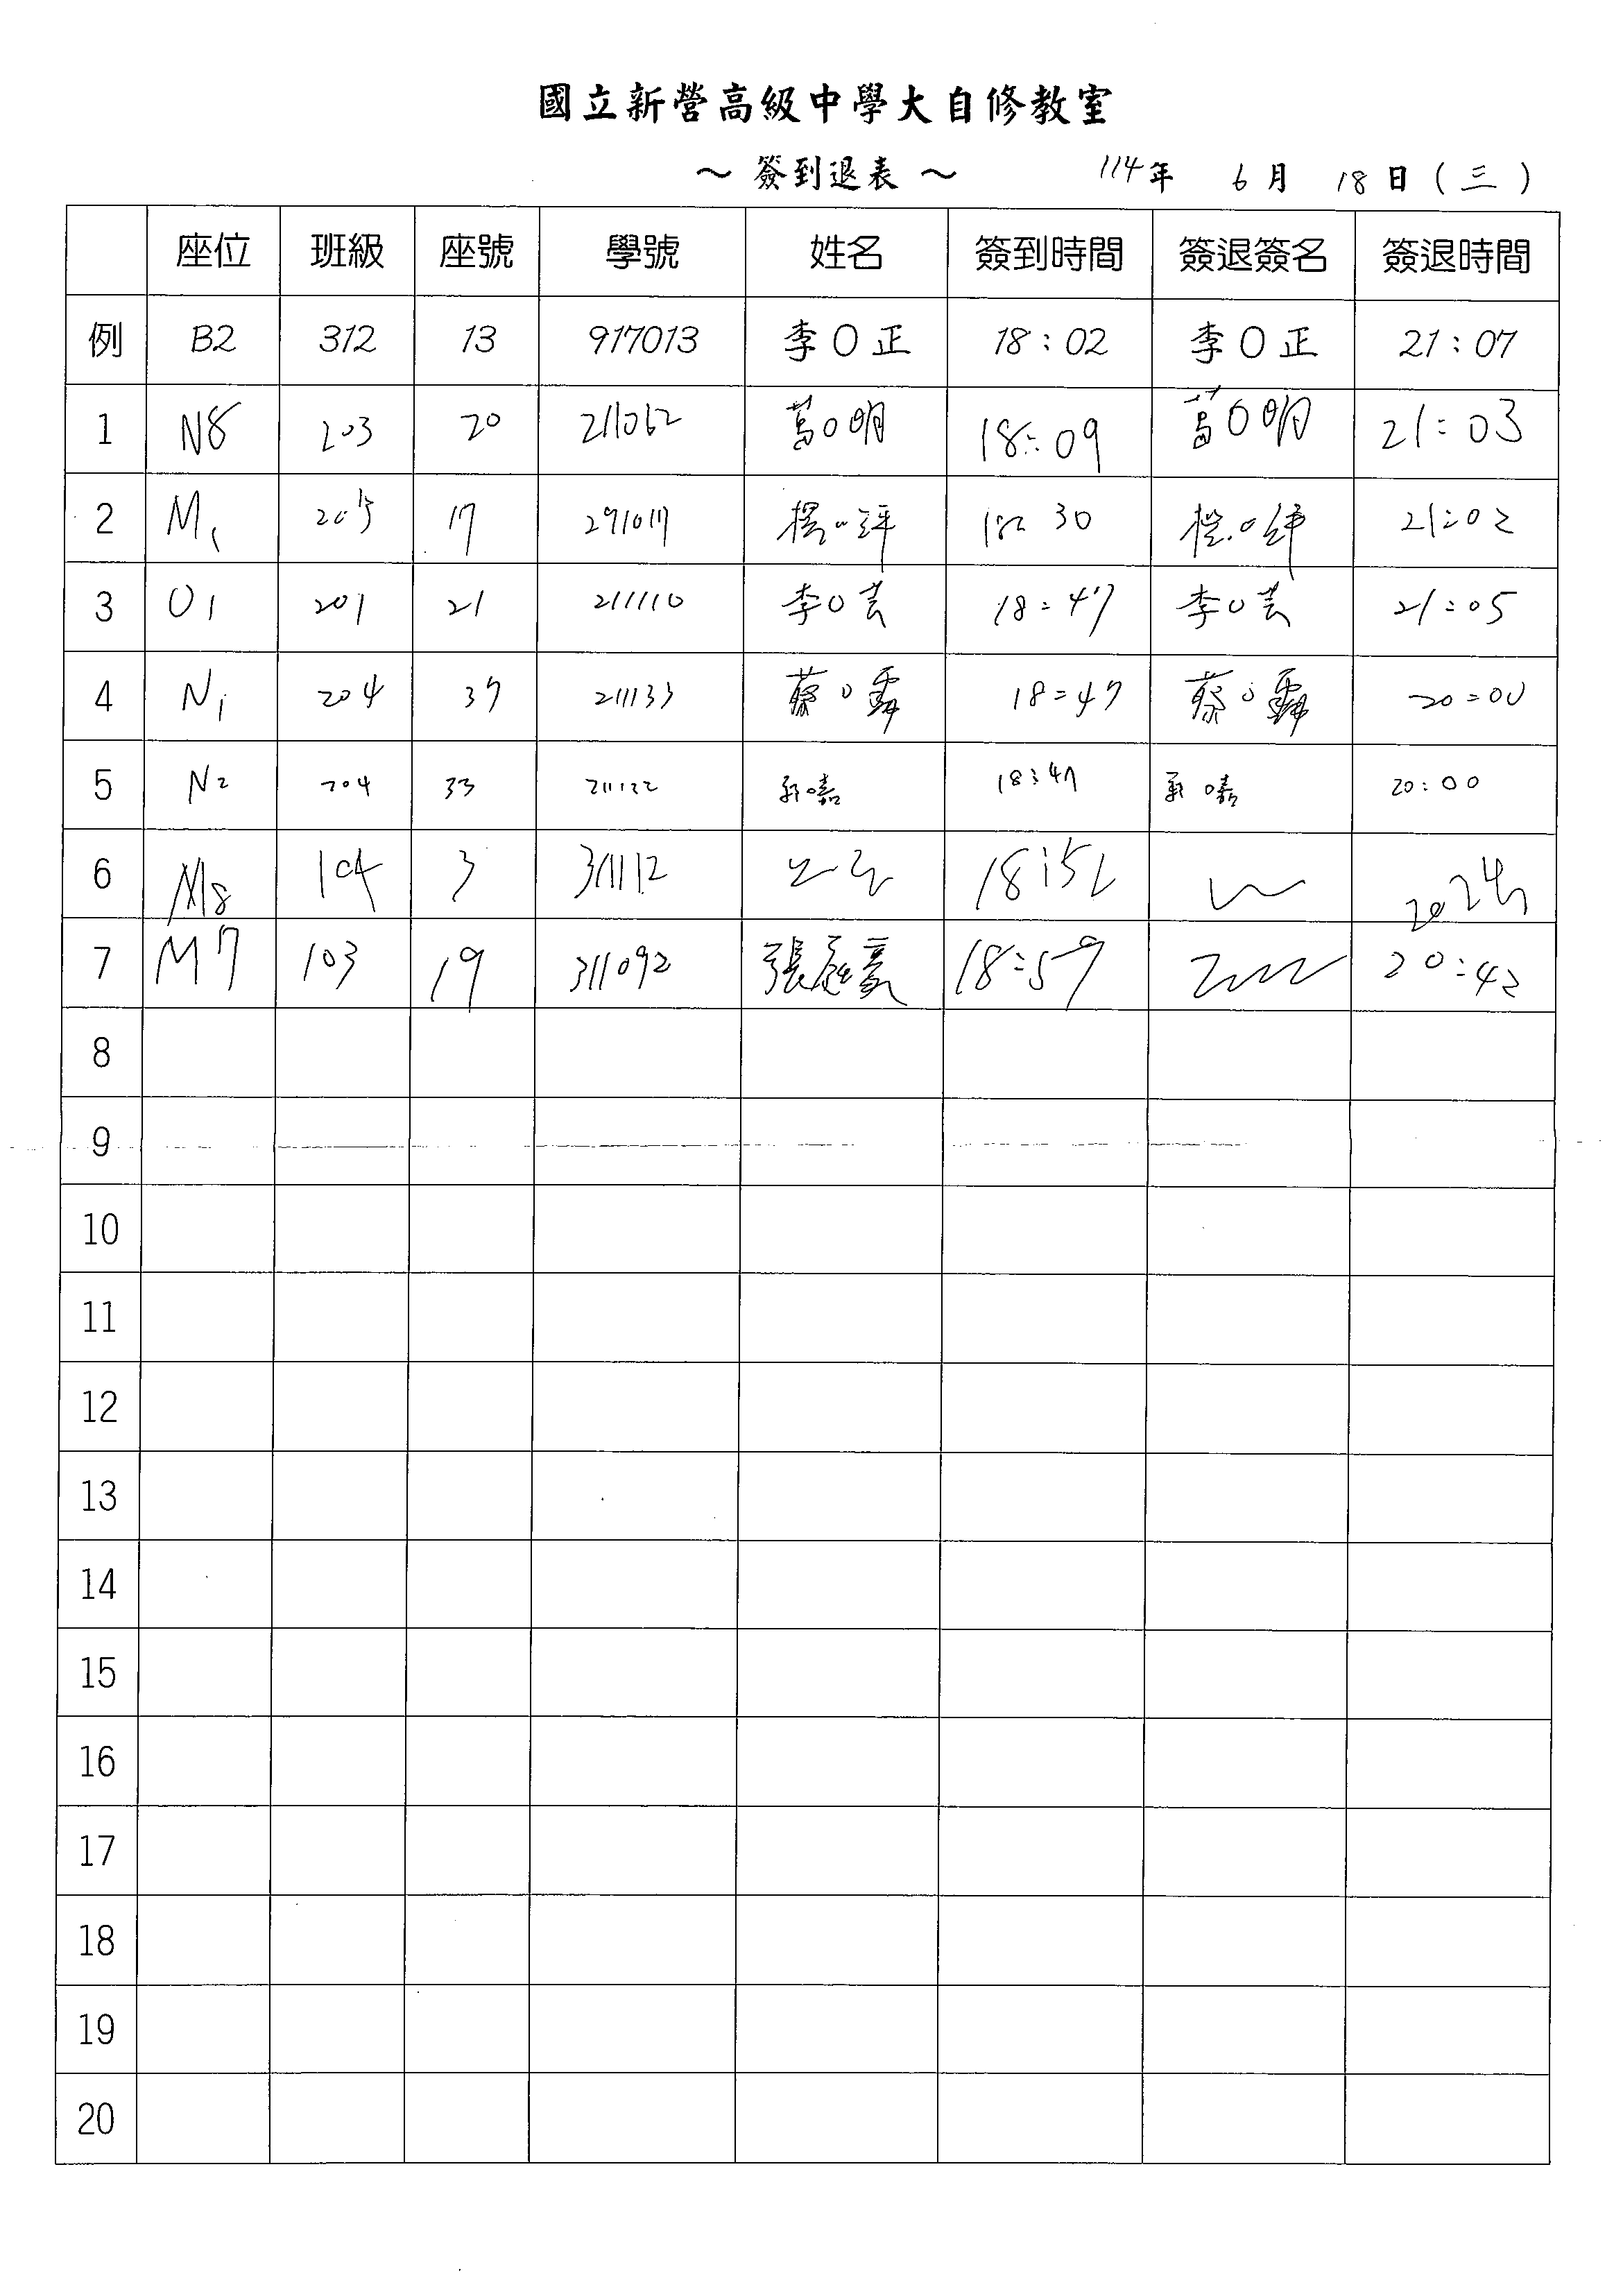 國立新營高級中學大自修教室
～ 簽到退表 ～ 114年 6月 18日（三）
座位 班級 座號 學號 姓名 簽到時間 簽退簽名 簽退時間
例 B2 312 13 917013 李O正 18:02 李O正 21:07
1 N8 203 20 211062 葛O明 18:09 葛O明 21:03
2 M1 205 17 291017 楊O評 18:30 21:02
3 O1 201 21 211110 李O芸 18:47 李O芸 21:05
4 N1 204 37 211133 蔡O霖 18:47 蔡O霖 20:00
5 N2 204 33 211122 18:47 20:00
6 M8 104 3 311112 18:52
7 M7 103 19 311092 張庭豪 18:59 20:42
8
9
10
11
12
13
14
15
16
17
18
19
20